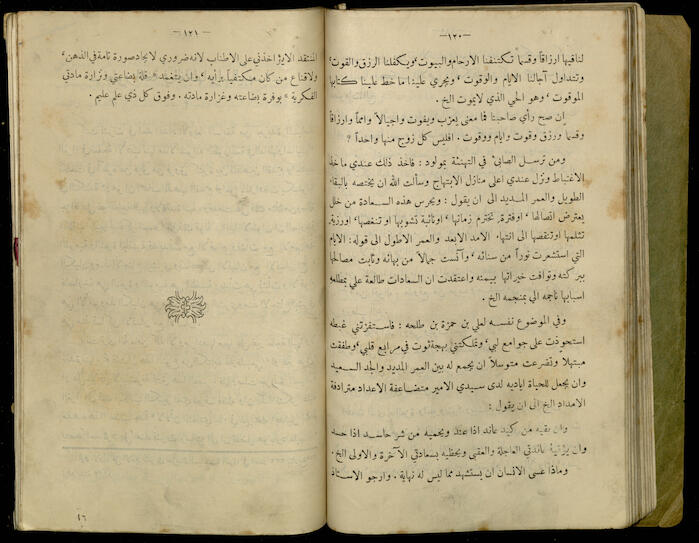 — ١٢٠ —
لناقيها ارزاقاً وقسماً تكتنفنا الارحام والبيوت ، ويكفلنا الرزق والقوت ،
وتتداول آجالنا الايام والوقوت ، ويجري علينا ما خط علينا كتابها
الموقوت ، وهو الحي الذي لا يموت الخ .
ان صح رأي صاحبنا فما معنى يعزب ويفوت واجيالاً وامماً وارزاقاً
وقسماً ورزق وقوت وايام ووقوت . افليس كل زوج منها واحداً ؟
ومن ترسل الصابيّ في التهنئة بمولود : فاخذ ذلك عندي مأخذ
الاغتباط ونزل عندي اعلى منازل الابتهاج وسألت الله ان يختصه بالبقاء
الطويل والعمر المديد الى ان يقول : ويحرس هذه السعادة من خلل
يعترض اتصالها ، اوفترة تخترم زمانها ، اونائبة تشوبها او تنغصها ، اورزية
تثلمها اوتنقصها الى انتهاء الامد الابعد والعمر الاطول الى قوله : الايام
التي استشعرت نوراً من سنائه ، وآنست جمالاً من بهائه وثابت مصالحها
ببركته وتوافت خيراتها بيمنه واعتقدت ان السعادات طالعة علي بمطلعه
اسبابها ناجمه الى بمنجمه الخ .
وفي الموضوع نفسه لعلي بن حمزة بن طلحه : فاستفزتني غبطه
استحوذت على جوامع لبي ، وتملكتني بهجة ثوت في مرابع قلبي ، وطفقت
مبتهلاً وتضرعت متوسلاً ان يجمع له بين العمر المديد والجد السعيد
وان يجعل للحياة اياديه لدى سيدي الامير متضاعفة الاعداد مترادفة
الامداد الخ الى ان يقول :
وان يقيه من كيد عاند اذا عند ويحميه من شر حاسد اذا حسد
وان يؤتيه عائدتي العاجلة والعقبى ويحظيه بسعادتي الآخرة والاولى الخ .
وماذا عسى الانسان ان يستشهد مما ليس له نهاية . وارجو الاستاذ
— ١٢١ —
المنتقد الايؤاخذني على الاطناب لانه ضروري لايجاد صورة تامة في الذهن ،
ولاقناع من كان مكتفياً برأيه ، وان يتغمد « قلة بضاعتي ونزارة مادتي
الفكرية » بوفرة بضاعته وغزارة مادته . وفوق كل ذي علم عليم .
١٦